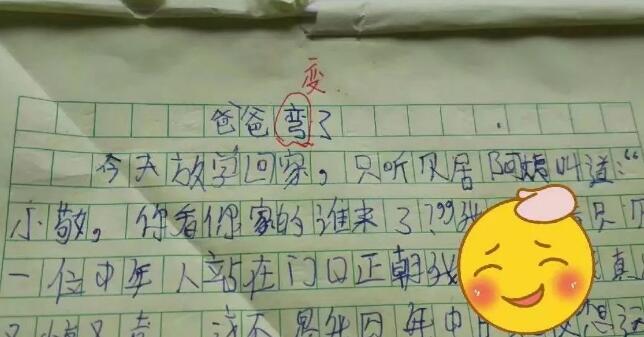 变
爸爸弯了
今天放学回家，只听见居阿姨叫道：“
小敬，你看你家的谁来了？”我 只见
一位中年人站在门口正朝我 真
这不是 年 年中 想过